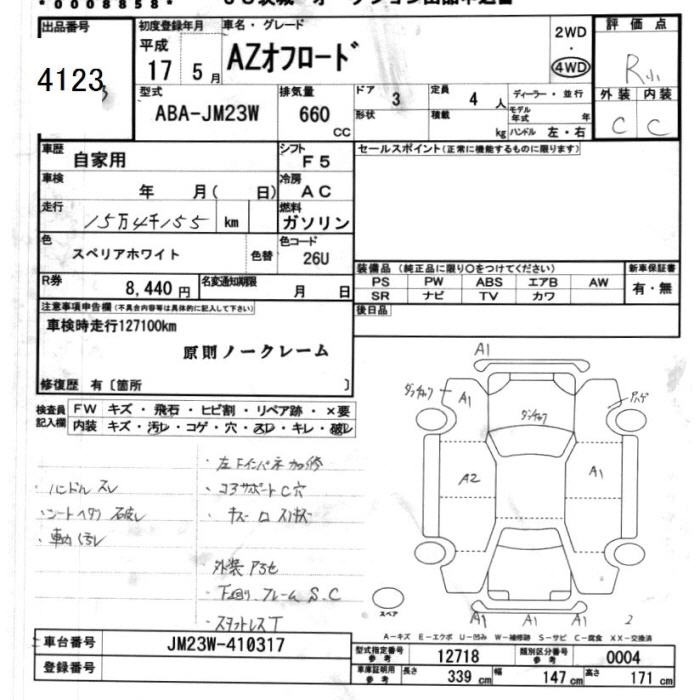 * 0 0 0 8 8 5 8 *
出品番号 4123
初度登録年月 平成 17 5月
車名・グレード AZオフロード
2WD・4WD
評価点 R
型式 ABA-JM23W
排気量 660 CC
ドア 3
形状
定員 4 人
積載 kg
ディーラー・並行
モデル年式 年
ハンドル 左・右
外装 C
内装 C
車歴 自家用
シフト F 5
セールスポイント(正常に機能するものに限ります)
車検 年 月( 日)
冷房 A C
走行 15万4千155 km
燃料 ガソリン
色 スペリアホワイト 色替
色コード 26U
装備品(純正品に限り○をつけてください)
新車保証書
PS PW ABS エアB AW
SR ナビ TV カワ
有・無
R券 8,440 円
名変通知期限 月 日
後日品
注意事項申告欄(不具合内容等は具体的に記入して下さい)
車検時走行127100km
原則ノークレーム
修復歴 有〔箇所 〕
検査員記入欄
FW キズ・飛石・ヒビ割・リペア跡・×要
内装 キズ・汚レ・コゲ・穴・スレ・キレ・破レ
・ハンドル スレ
・シートヘタリ 破レ
・車内 汚レ
・コアサポート C 穴
外装 アラセ
・下回リ.フレーム S.C
・スタットレス T
A1
A1
A2
A1
A1 A1 A1
2
スペア
A-キズ E-エクボ U-凹み W-補修跡 S-サビ C-腐食 XX-交換済
車台番号 JM23W-410317
登録番号
型式指定番号 参考 12718
類別区分番号 参考 0004
車庫証明用 参考 長さ 339 cm 幅 147 cm 高さ 171 cm